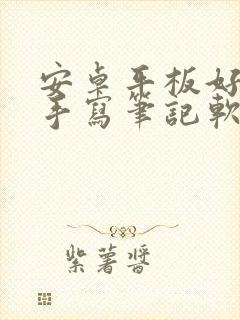 安卓平板好
手寫筆記軟
紫薯醬